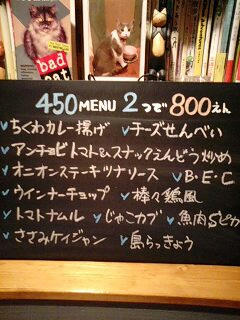 bad
cat
450 MENU 2つで 800えん
ちくわカレー揚げ チーズせんべい
アンチョビトマト&スナックえんどう炒め
オニオンステーキツナソース B・E・C
ウインナーチョップ 棒々鶏風
トマトナムル じゃこカブ 魚肉ピカ
ささみケイジャン 島らっきょう